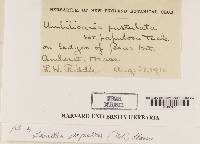 HERBARIUM OF NEW ENGLAND BOTANICAL CLUB
Umbilicaria pustulata
var. papulosa Tuck.
on ledges of Bear Mt.
Amherst, Mass.
L. W. Riddle. Aug. 31, 1910
FARLOW
HERBARIUM
HARVARD UNIVERSITY HERBARIA
Lasallia papulosa (Ach.) Llano